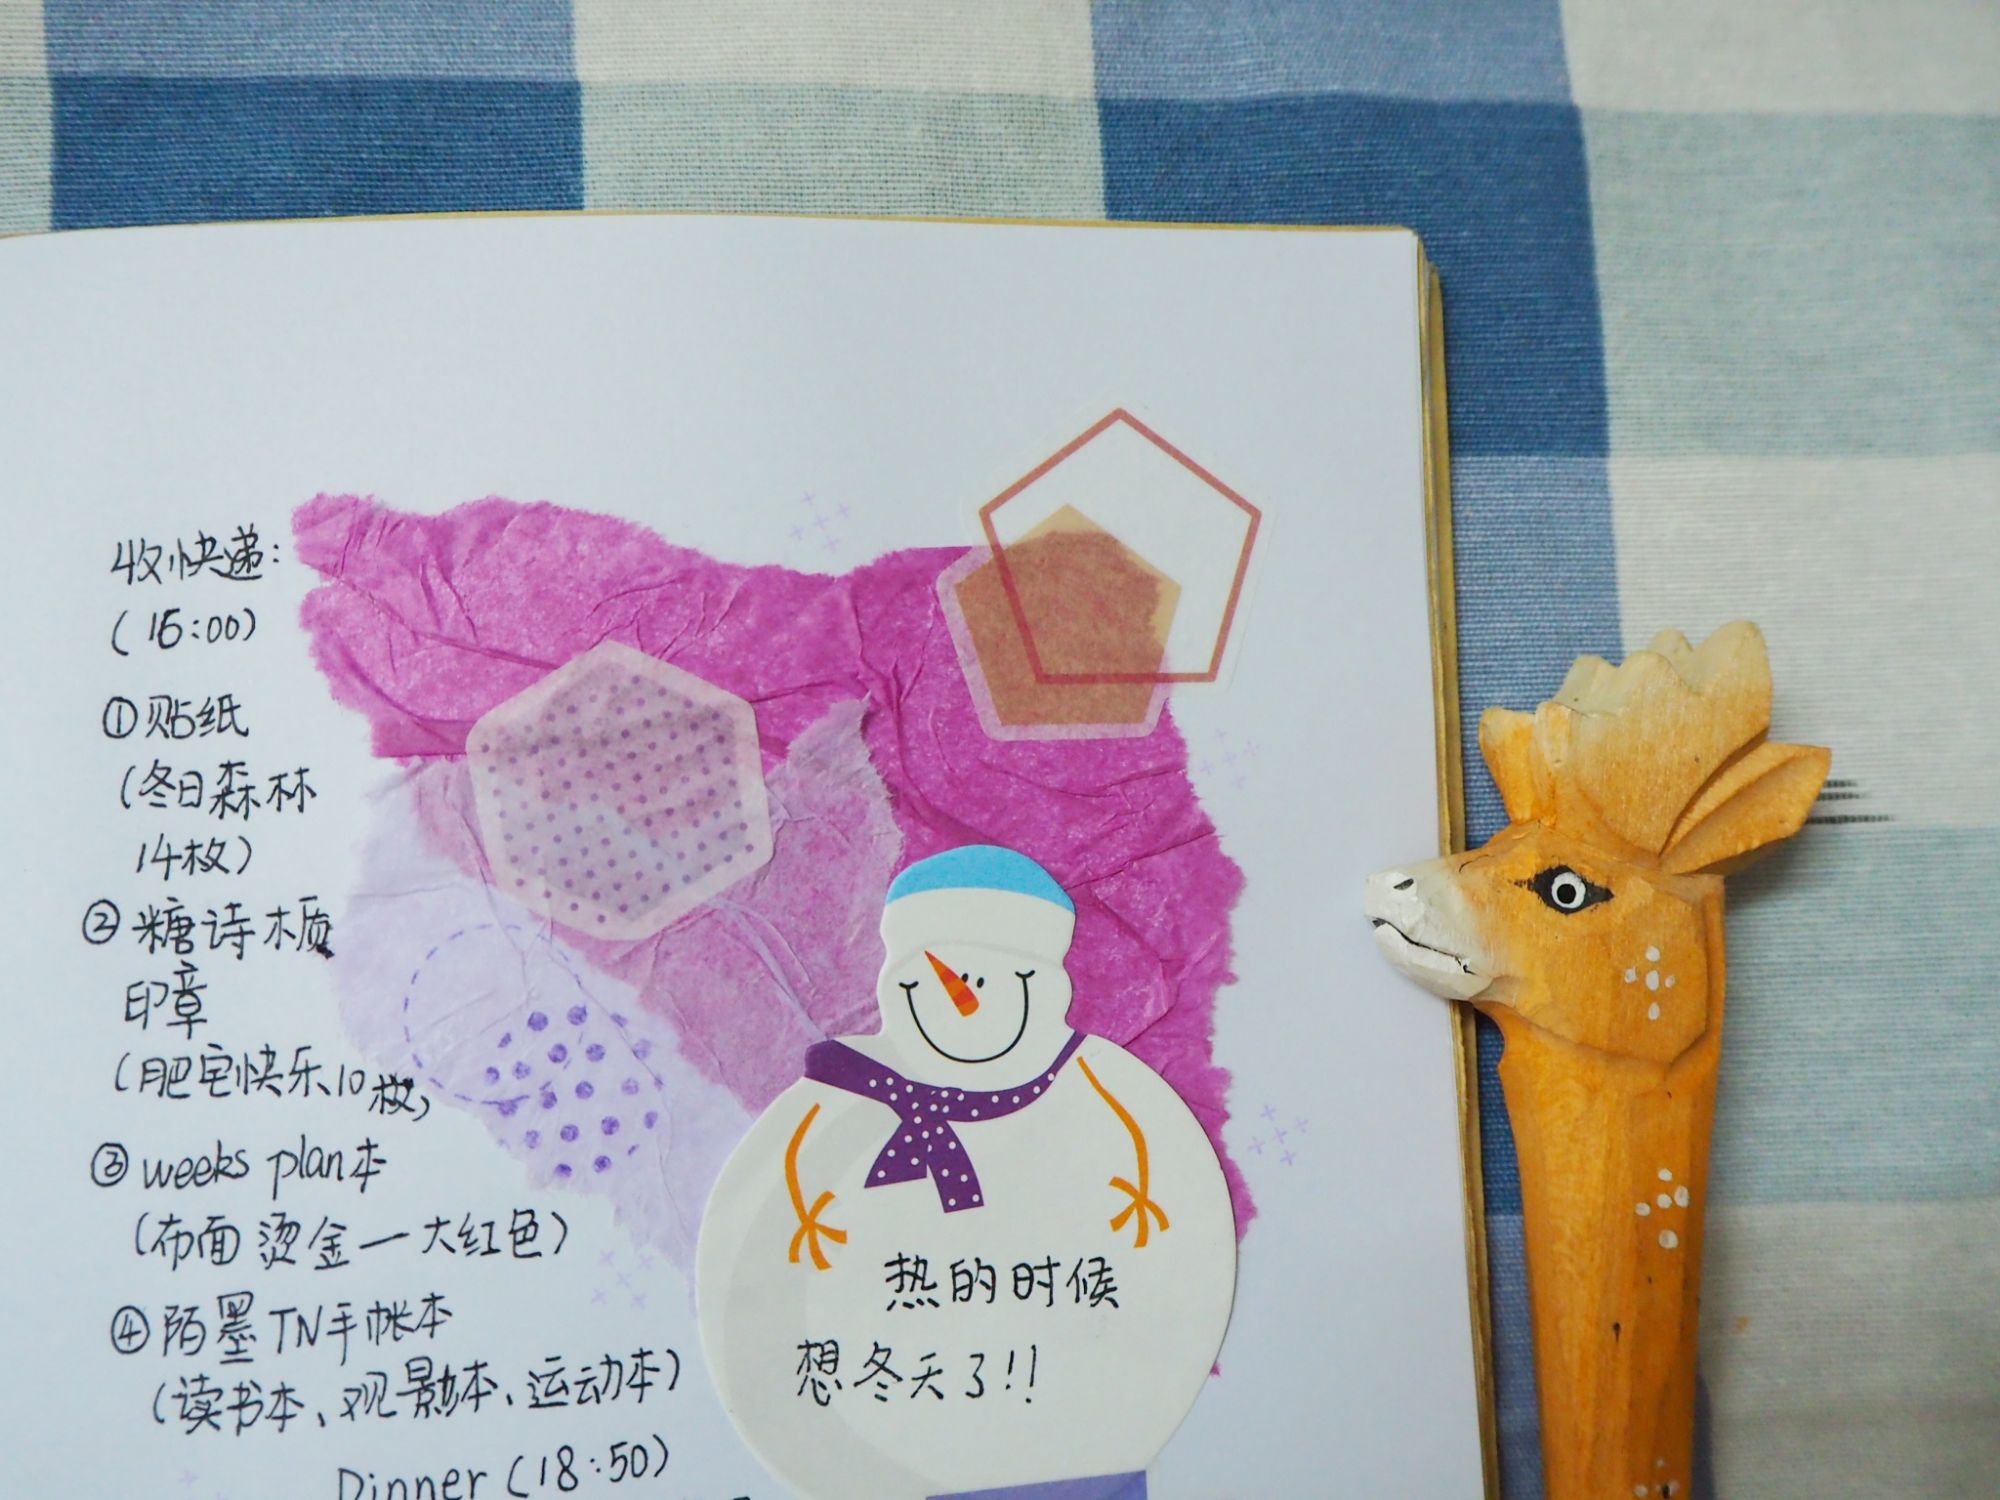 收快递:
(16:00)
①贴纸
(冬日森林
14枚)
②糖诗木质
印章
(肥宅快乐10枚)
③weeks plan本
(布面烫金一大红色)
④陌墨TN手帐本
(读书本、观影本、运动本)
Dinner(18:50)
热的时候
想冬天了!!